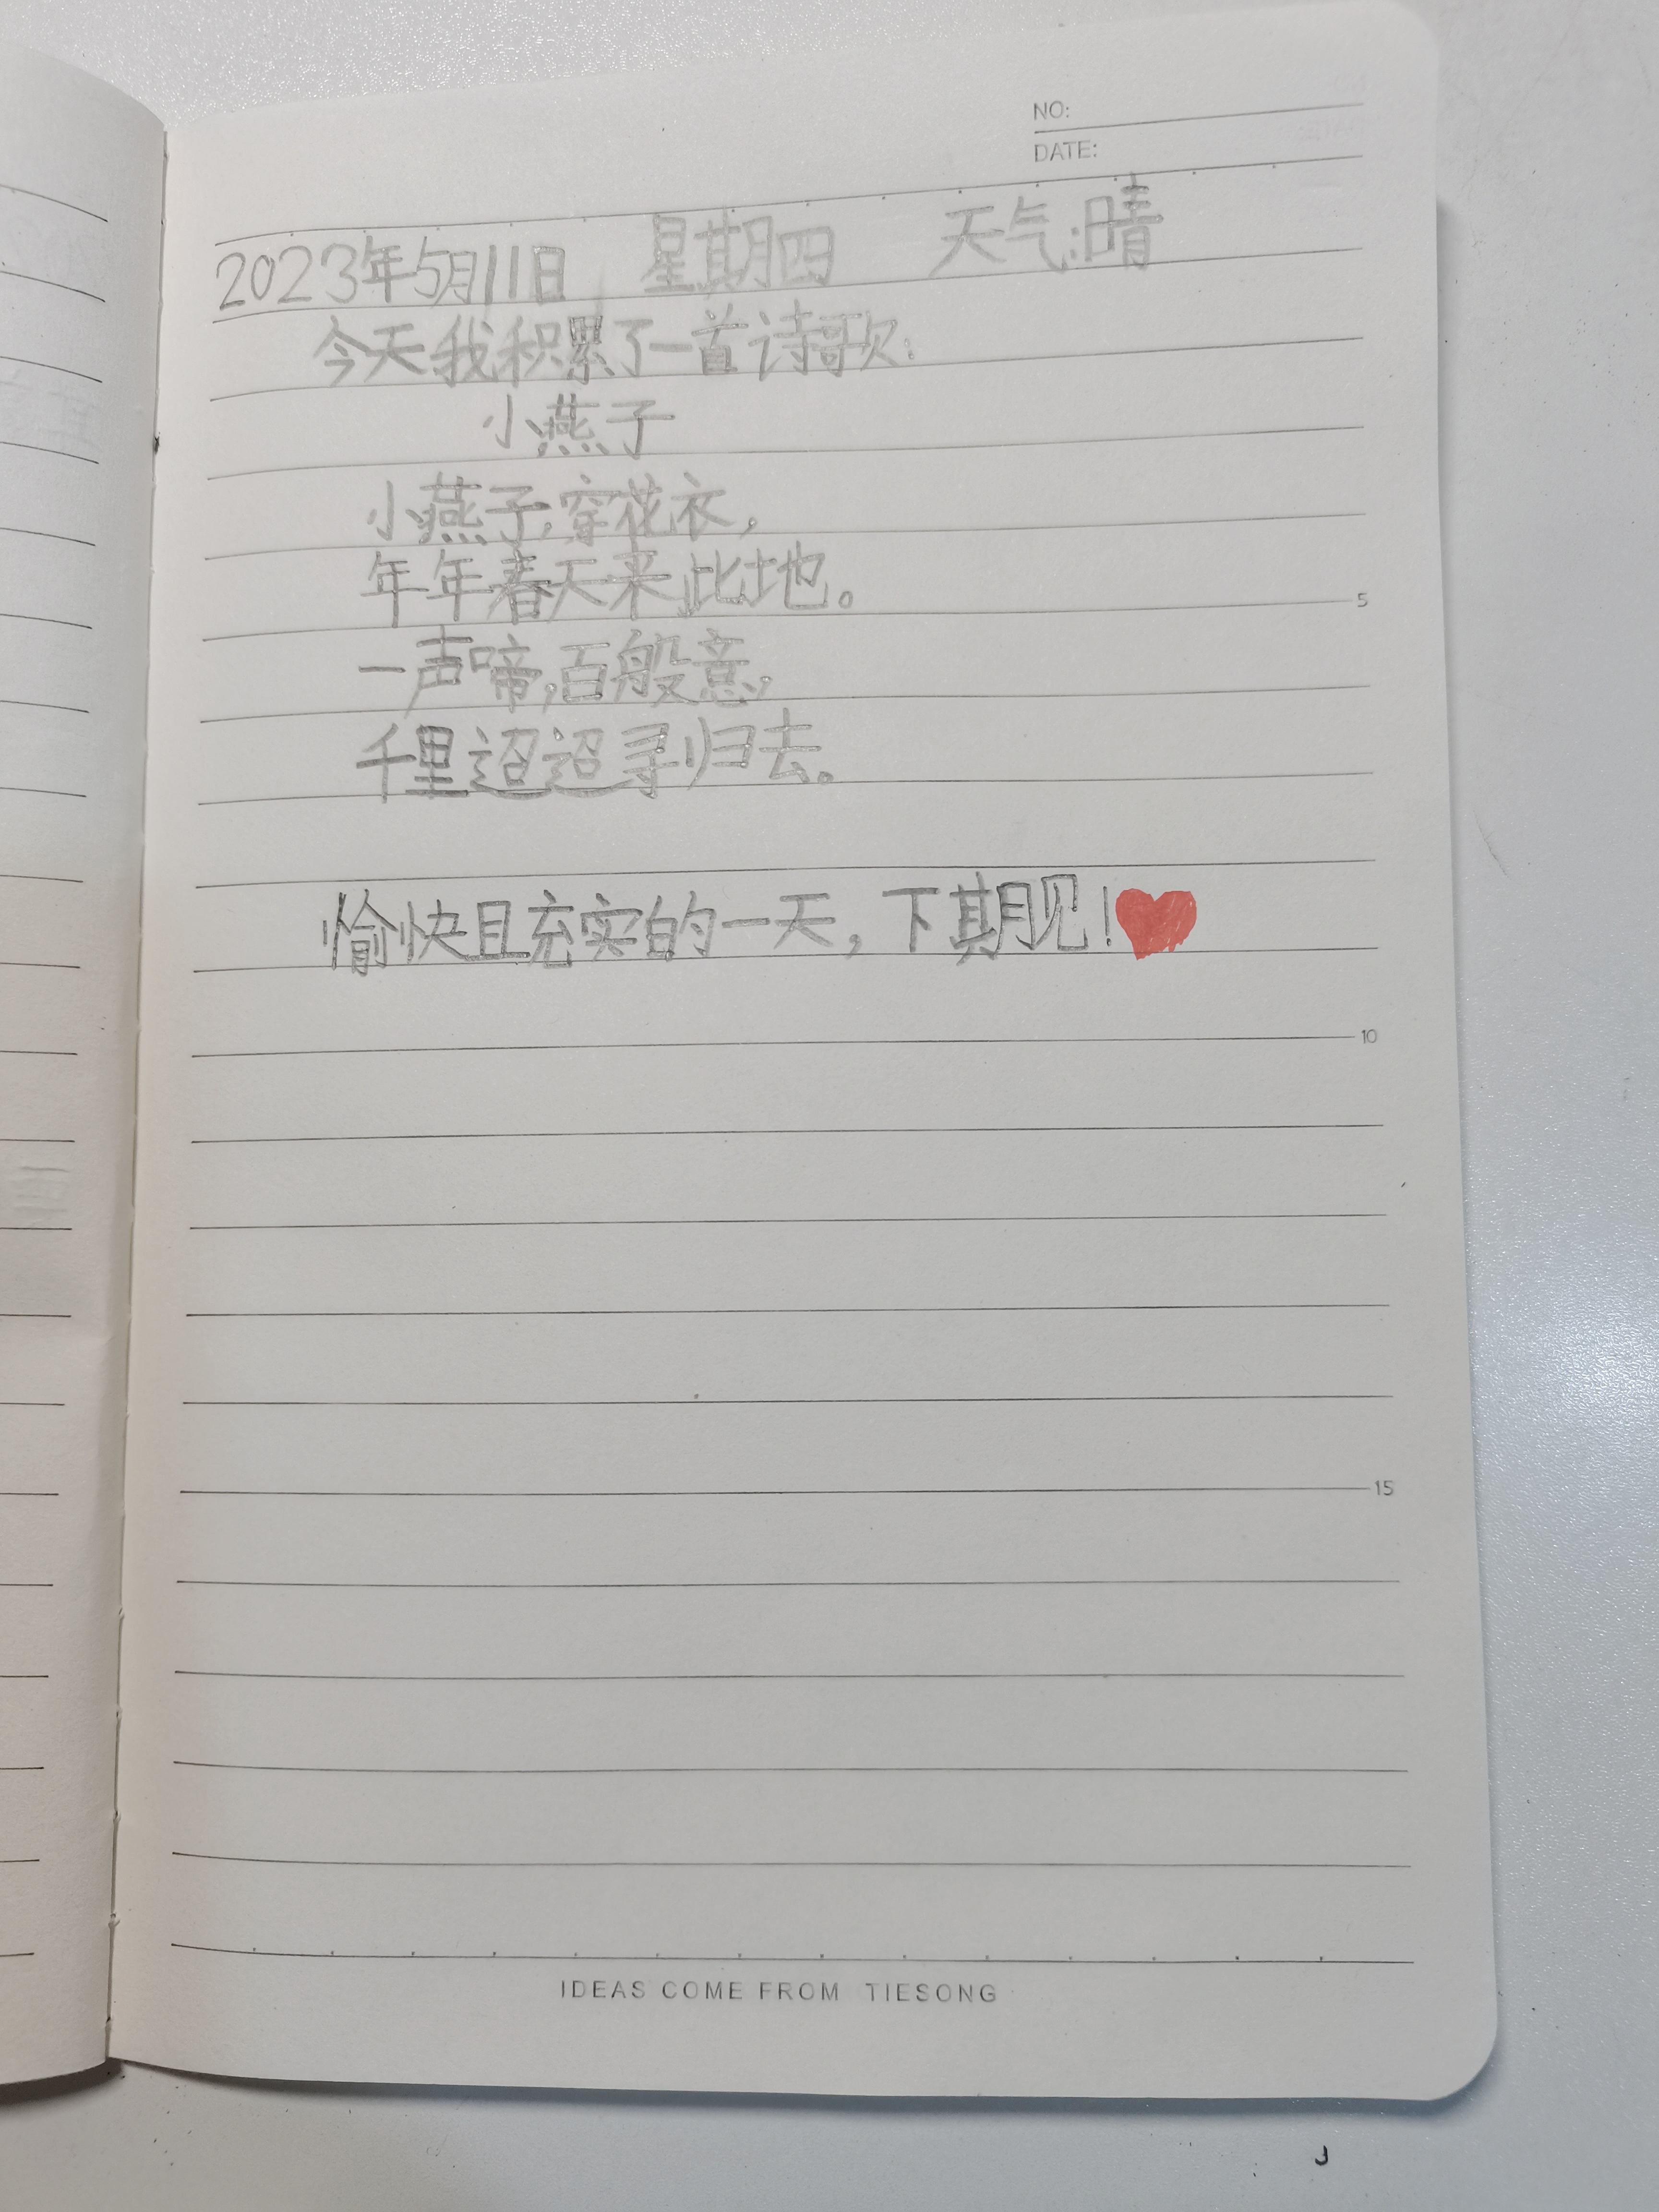 NO:
DATE:
2023年5月11日 星期四 天气:晴
今天我积累了一首诗歌:
小燕子
小燕子,穿花衣,
年年春天来此地。
一声啼,百般意,
千里迢迢寻归去。
5
愉快且充实的一天,下期见!
10
15
IDEAS COME FROM TIESONG